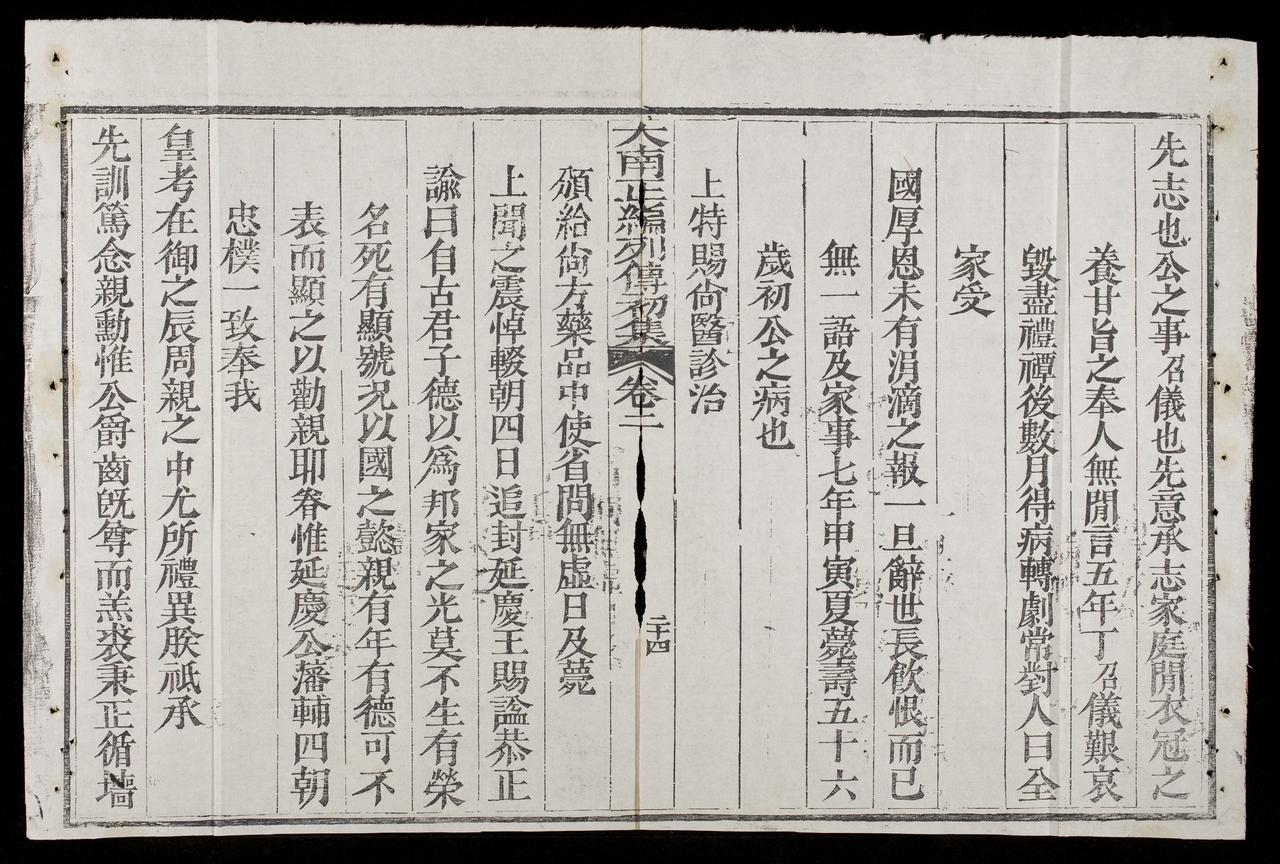 先志也公之事召儀也先意承志家庭閒衣冠之
養甘旨之奉人無閒言五年丁召儀艱哀
毀盡禮禫後數月得病轉劇常對人曰全
家受
國厚恩未有涓滴之報一旦辭世長飲恨而已
無一語及家事七年申寅夏薨壽五十六
歲初公之病也
上特賜尙醫診治
大南正編列傳初集 卷二 二十四
頒給尙方藥品中使省問無虛日及薨
上聞之震悼輟朝四日追封延慶王賜諡恭正
諭曰自古君子德以爲邦家之光莫不生有榮
名死有顯號况以國之懿親有年有德可不
表而顯之以勸親耶眷惟延慶公藩輔四朝
忠樸一致奉我
皇考在御之辰周親之中尤所禮異朕祗承
先訓篤念親勳惟公爵齒旣尊而羔裘秉正循墻